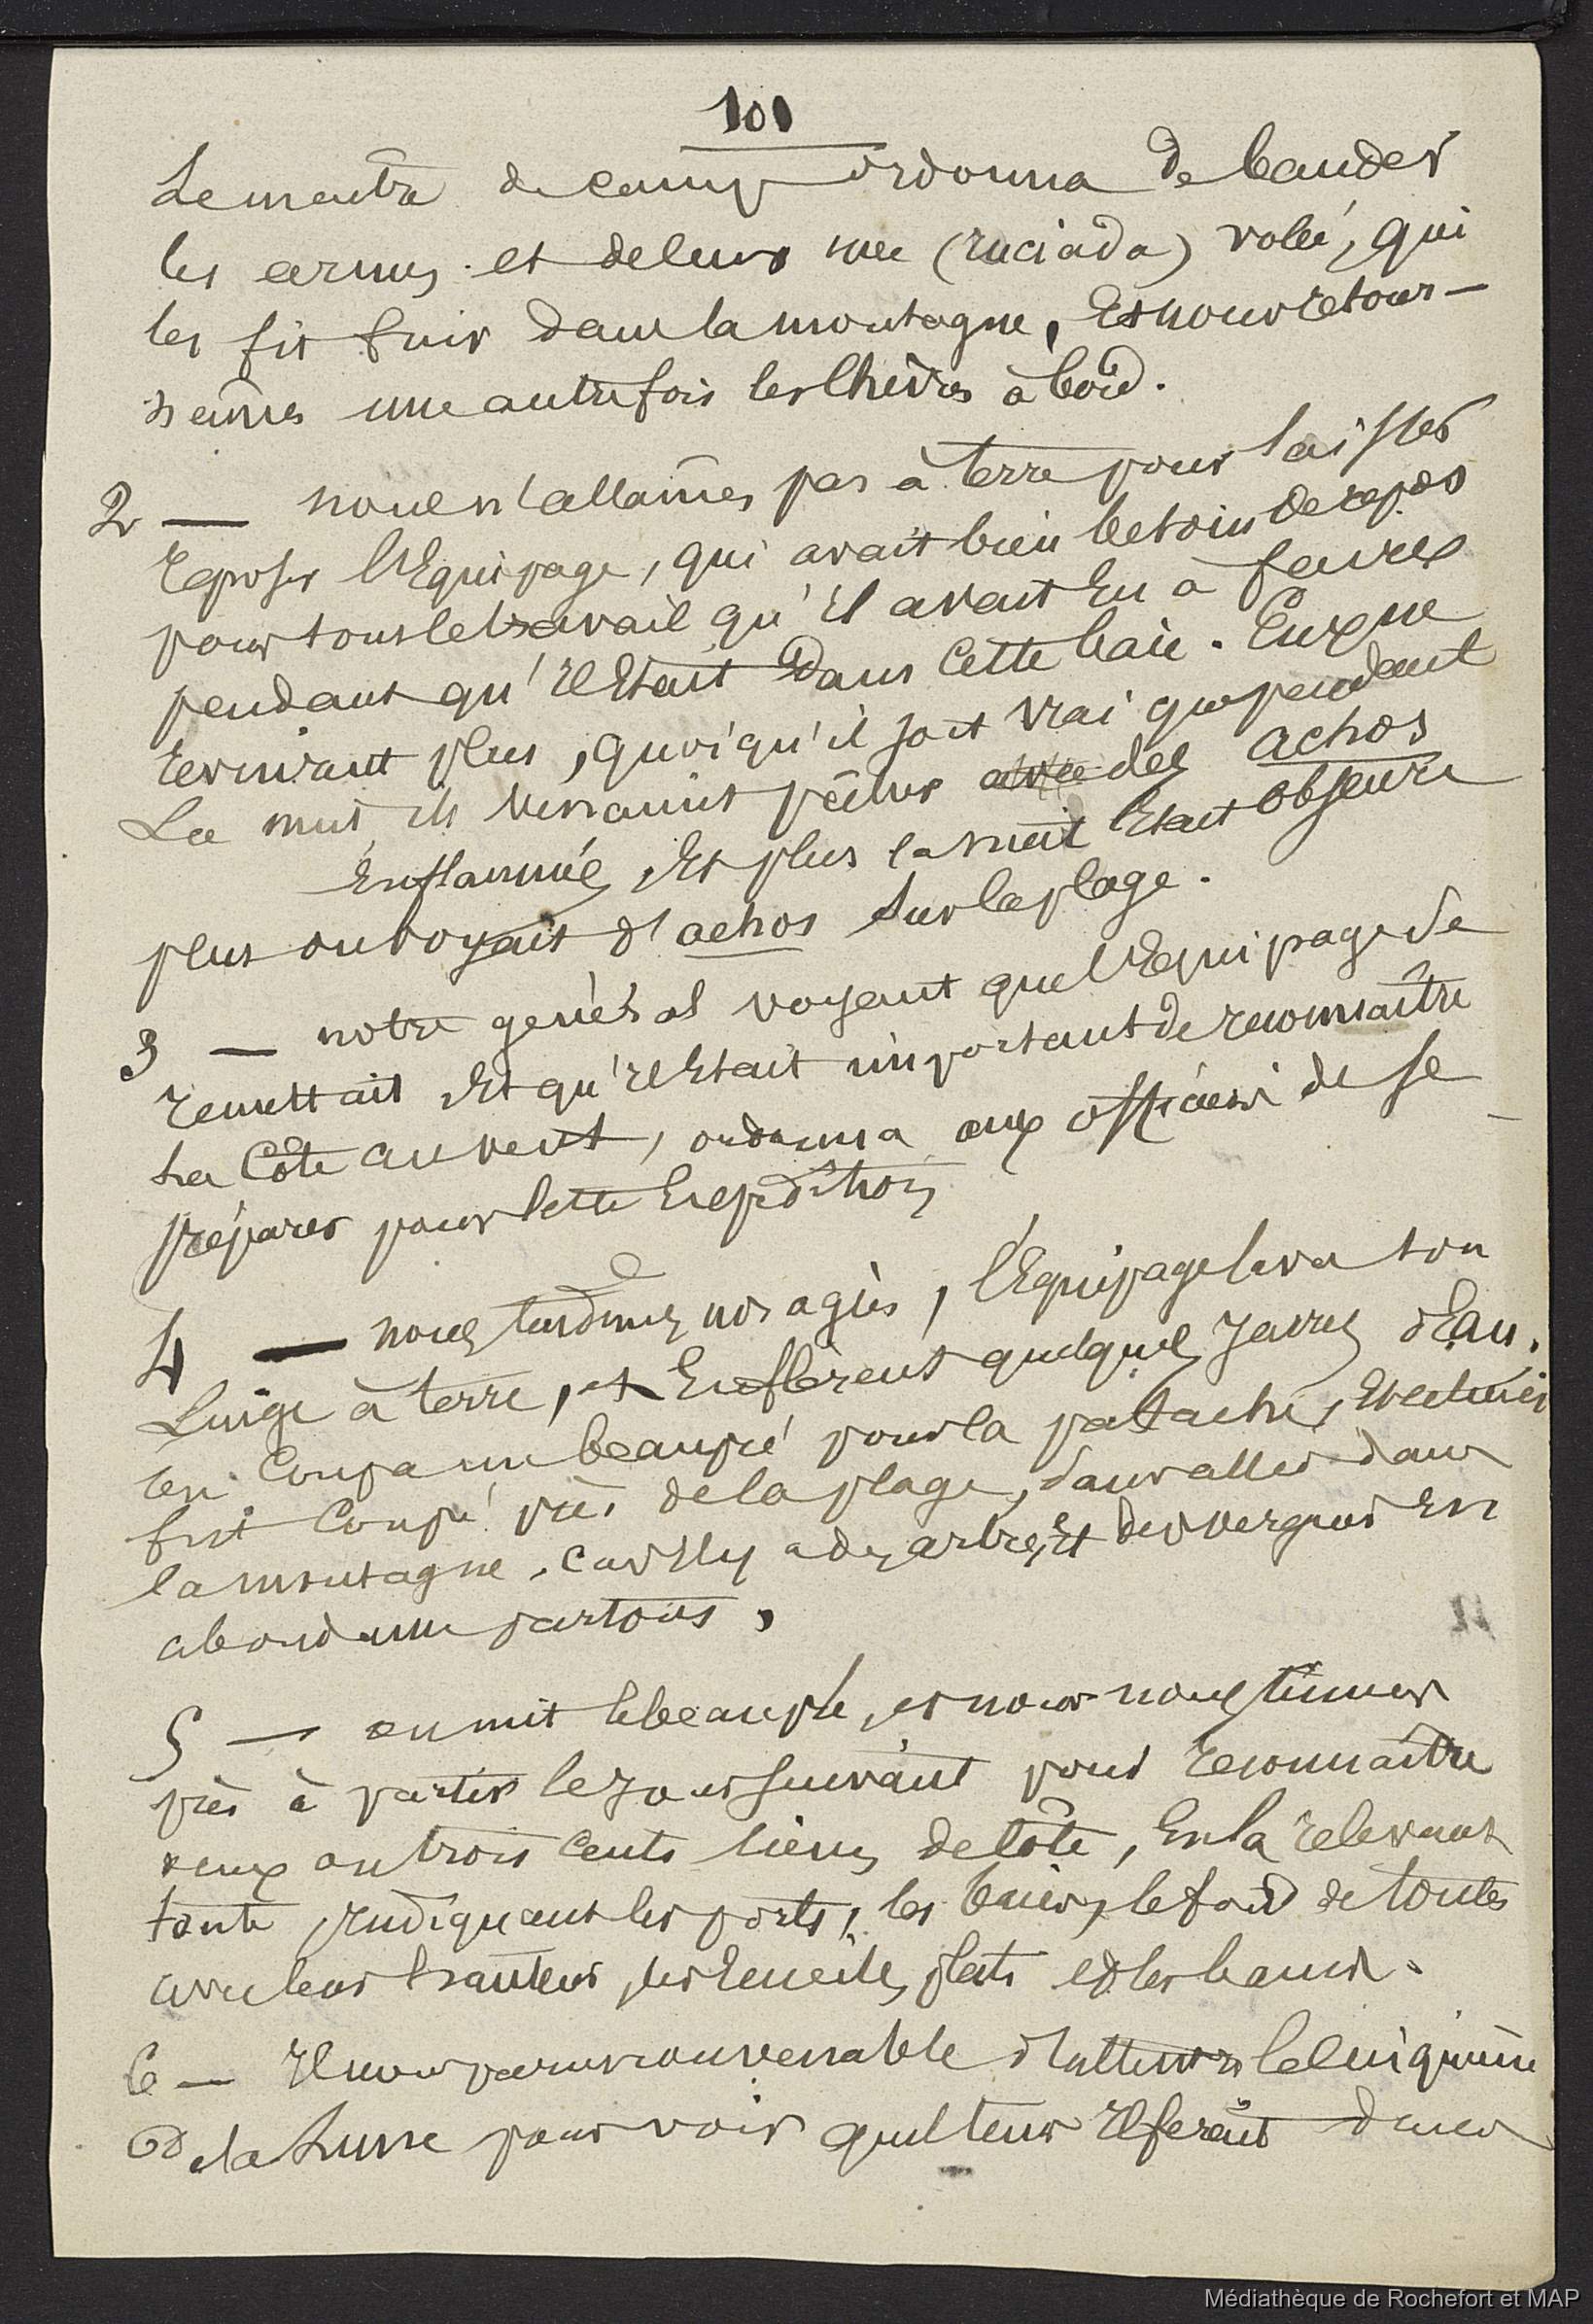 101
Le mestre de camp ordonna de bander
les armes et de leur une (ruciada) volée, qui
les fit fuir dans la montagne, Et nous retour-
nâmes une autre fois les chèvres à bord.
2 — nous n'allâmes pas à terre pour laisser
reposer l'Equipage, qui avait bien besoin de repos
pour tous le travail qu'il avait Eu à faire
pendant qu'il Etait Dans Cette baie. Eux ne
revinrent plus, quoiqu'il soit vrai que pendant
La nuit ils venaient pêcher avec des achos
Enflammés, Et plus la nuit Etait obscure
plus on voyait d'achos sur la plage.
3 — notre général voyant que l'Equipage se
remettait Et qu'il Etait important de reconnaître
la Côte au vent, ordonna aux officiers de se
préparer pour cette Expédition
4 — nous tendîmes nos agrès, l'Equipage lava son
Linge à terre, et Enflèrent quelques Jarres d'Eau.
On Coupa un beaupré pour la patache, Et celui-ci
fut Coupé près de la plage, sans aller dans
la montagne, car Il y a des arbres Et des vergues En
abondance partout,
5 — on mit le beaupré, et nous nous tînmes
près à partir le Jour suivant pour reconnaître
deux ou trois cents lieues de Côte, En la relevant
toute Indiquant les ports, les baies, le fond de toutes
avec leur hauteur, les Ecueils, plats et les bancs.
6 — Il nous parut convenable d'attendre le cinquième
de la Lune pour voir quel tems Il ferait
Médiathèque de Rochefort et MAP